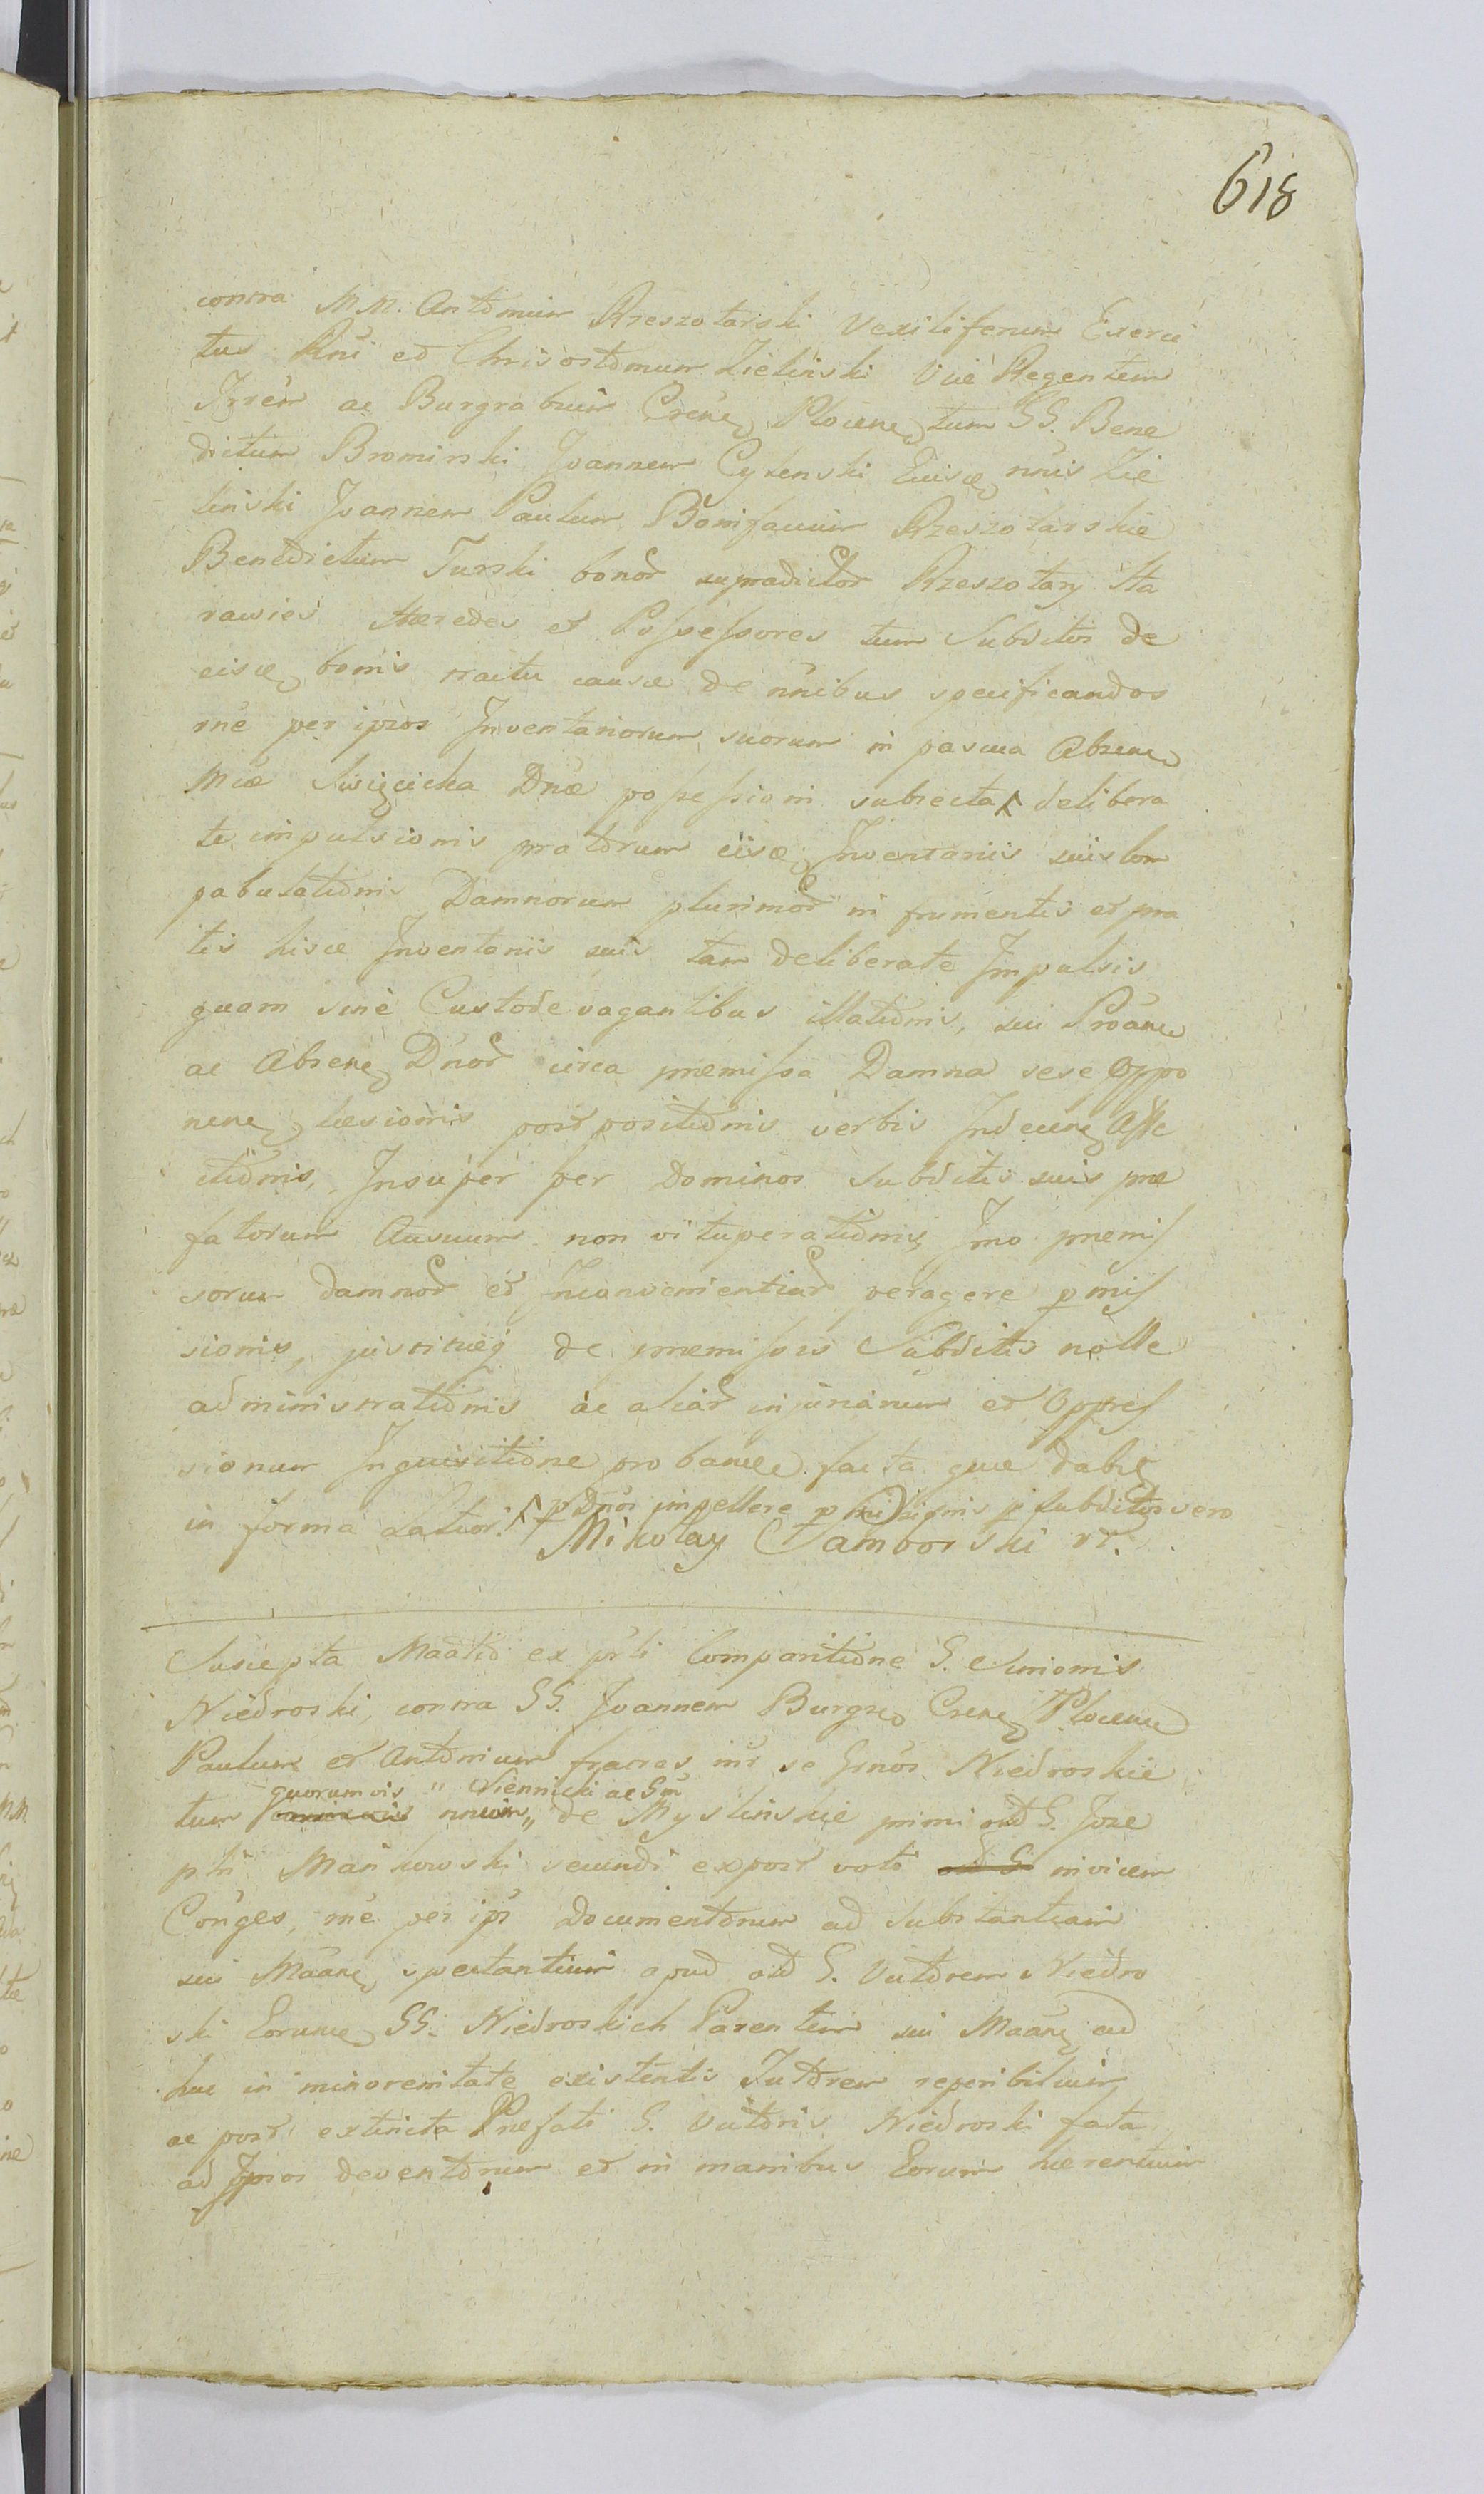 618
contra M.M. Antonium Rzeszotarski Vexiliferum Exerci
tus Rni et Chrisostomum Zieliński Vice Regentem
Trrem ac Burgrabium Crēn Plocen tum GG. Bene
dictum Bromirski Joannem Cytenski nnis Zie
liński Joannem Paulum Bonifacium Rzeszotarskie
Benedictum Turski bonor supradictor Rzeszotary Sta
rawies Hæredes et Possessores tum Subditos de
eisd bonis tractu causæ de nnibus specificandos
rne per ipsos Inventariorum suorum in pascua Absen
Mcæ Swięcicka Dnæ possessioni subiecta delibera
te impulsionis pratorum iisd Inventariis suis com
pabulationis Damnorum plurimor in frumentis et pra
tis hisce Inventariis suis tam deliberate Impulsis
quam sine Custode vagantibus illationis, sui Proan
ac Absen Dnor circa præmissa Damna sese Oppo
nen læsionis postpositionis verbis Indecen Affe
ctionis, Insuper per Dominos Subditis suis præ
fatorum Ausuum non vituperationis Imo præmis
sorum Damnor et Inconvenientiar peragere pmis
sionis, justitiæq de præmissis Subditis nolle
administrationis ac aliar injuriarum et Oppres
sionum Inquisitione probande facta que dabit
in forma Latiori. p Dnos impellere p subditos vero
Mikołay Samborski
Suscepta Maatio ex prli Comparitione G. Simonis
Niedroski, contra GG. Joannem Burgr Cren Plocen
Paulum et Antonium fratres int se Grnos Niedroskie
quorumvis " Niennicki ac Gm
tum nnum " de Myslinskie primi ad G. Jose
phi Mańkowski secundi expost voti ad G invicem
Conges, rne per ips Documentorum ad Substantiam
sui Maane spectantium apud ad G. Victorem Niedro
ski Eorum GG. Niedroskich Parentem sui Maane ad
huc in minorenitate existentis Tutorem reperibilium
ac post extincta Præfati G. Victoris Niedroski fata
ad Ipsos deventorum et in manibus Eorum hærentium